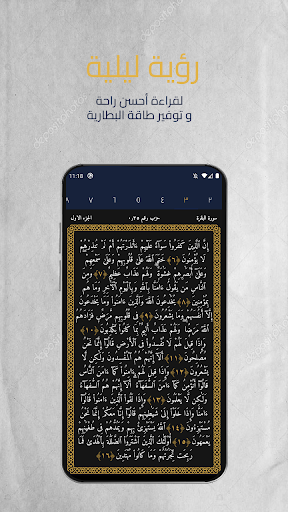 رؤية ليلية
لقراءة أحسن راحة
و توفير طاقة البطارية
11:18
٢ ٣ ٤ ٥ ٦ ٧ ٨
سورة البقرة حزب رقم ٠٫٢٥ الجزء الاول
إِنَّ ٱلَّذِينَ كَفَرُوا۟ سَوَآءٌ عَلَيْهِمْ ءَأَنذَرْتَهُمْ أَمْ لَمْ تُنذِرْهُمْ
لَا يُؤْمِنُونَ ﴿٦﴾ خَتَمَ ٱللَّهُ عَلَىٰ قُلُوبِهِمْ وَعَلَىٰ سَمْعِهِمْ
وَعَلَىٰٓ أَبْصَـٰرِهِمْ غِشَـٰوَةٌ وَلَهُمْ عَذَابٌ عَظِيمٌ ﴿٧﴾ وَمِنَ
ٱلنَّاسِ مَن يَقُولُ ءَامَنَّا بِٱللَّهِ وَبِٱلْيَوْمِ ٱلْـَٔاخِرِ وَمَا هُم
بِمُؤْمِنِينَ ﴿٨﴾ يُخَـٰدِعُونَ ٱللَّهَ وَٱلَّذِينَ ءَامَنُوا۟ وَمَا يَخْدَعُونَ
إِلَّآ أَنفُسَهُمْ وَمَا يَشْعُرُونَ ﴿٩﴾ فِى قُلُوبِهِم مَّرَضٌ فَزَادَهُمُ
ٱللَّهُ مَرَضًا وَلَهُمْ عَذَابٌ أَلِيمٌۢ بِمَا كَانُوا۟ يَكْذِبُونَ ﴿١٠﴾
وَإِذَا قِيلَ لَهُمْ لَا تُفْسِدُوا۟ فِى ٱلْأَرْضِ قَالُوٓا۟ إِنَّمَا نَحْنُ
مُصْلِحُونَ ﴿١١﴾ أَلَآ إِنَّهُمْ هُمُ ٱلْمُفْسِدُونَ وَلَـٰكِن لَّا
يَشْعُرُونَ ﴿١٢﴾ وَإِذَا قِيلَ لَهُمْ ءَامِنُوا۟ كَمَآ ءَامَنَ ٱلنَّاسُ
قَالُوٓا۟ أَنُؤْمِنُ كَمَآ ءَامَنَ ٱلسُّفَهَآءُ أَلَآ إِنَّهُمْ هُمُ ٱلسُّفَهَآءُ
وَلَـٰكِن لَّا يَعْلَمُونَ ﴿١٣﴾ وَإِذَا لَقُوا۟ ٱلَّذِينَ ءَامَنُوا۟ قَالُوٓا۟
ءَامَنَّا وَإِذَا خَلَوْا۟ إِلَىٰ شَيَـٰطِينِهِمْ قَالُوٓا۟ إِنَّا مَعَكُمْ إِنَّمَا نَحْنُ
مُسْتَهْزِءُونَ ﴿١٤﴾ ٱللَّهُ يَسْتَهْزِئُ بِهِمْ وَيَمُدُّهُمْ فِى طُغْيَـٰنِهِمْ
يَعْمَهُونَ ﴿١٥﴾ أُو۟لَـٰٓئِكَ ٱلَّذِينَ ٱشْتَرَوُا۟ ٱلضَّلَـٰلَةَ بِٱلْهُدَىٰ فَمَا
رَبِحَت تِّجَـٰرَتُهُمْ وَمَا كَانُوا۟ مُهْتَدِينَ ﴿١٦﴾